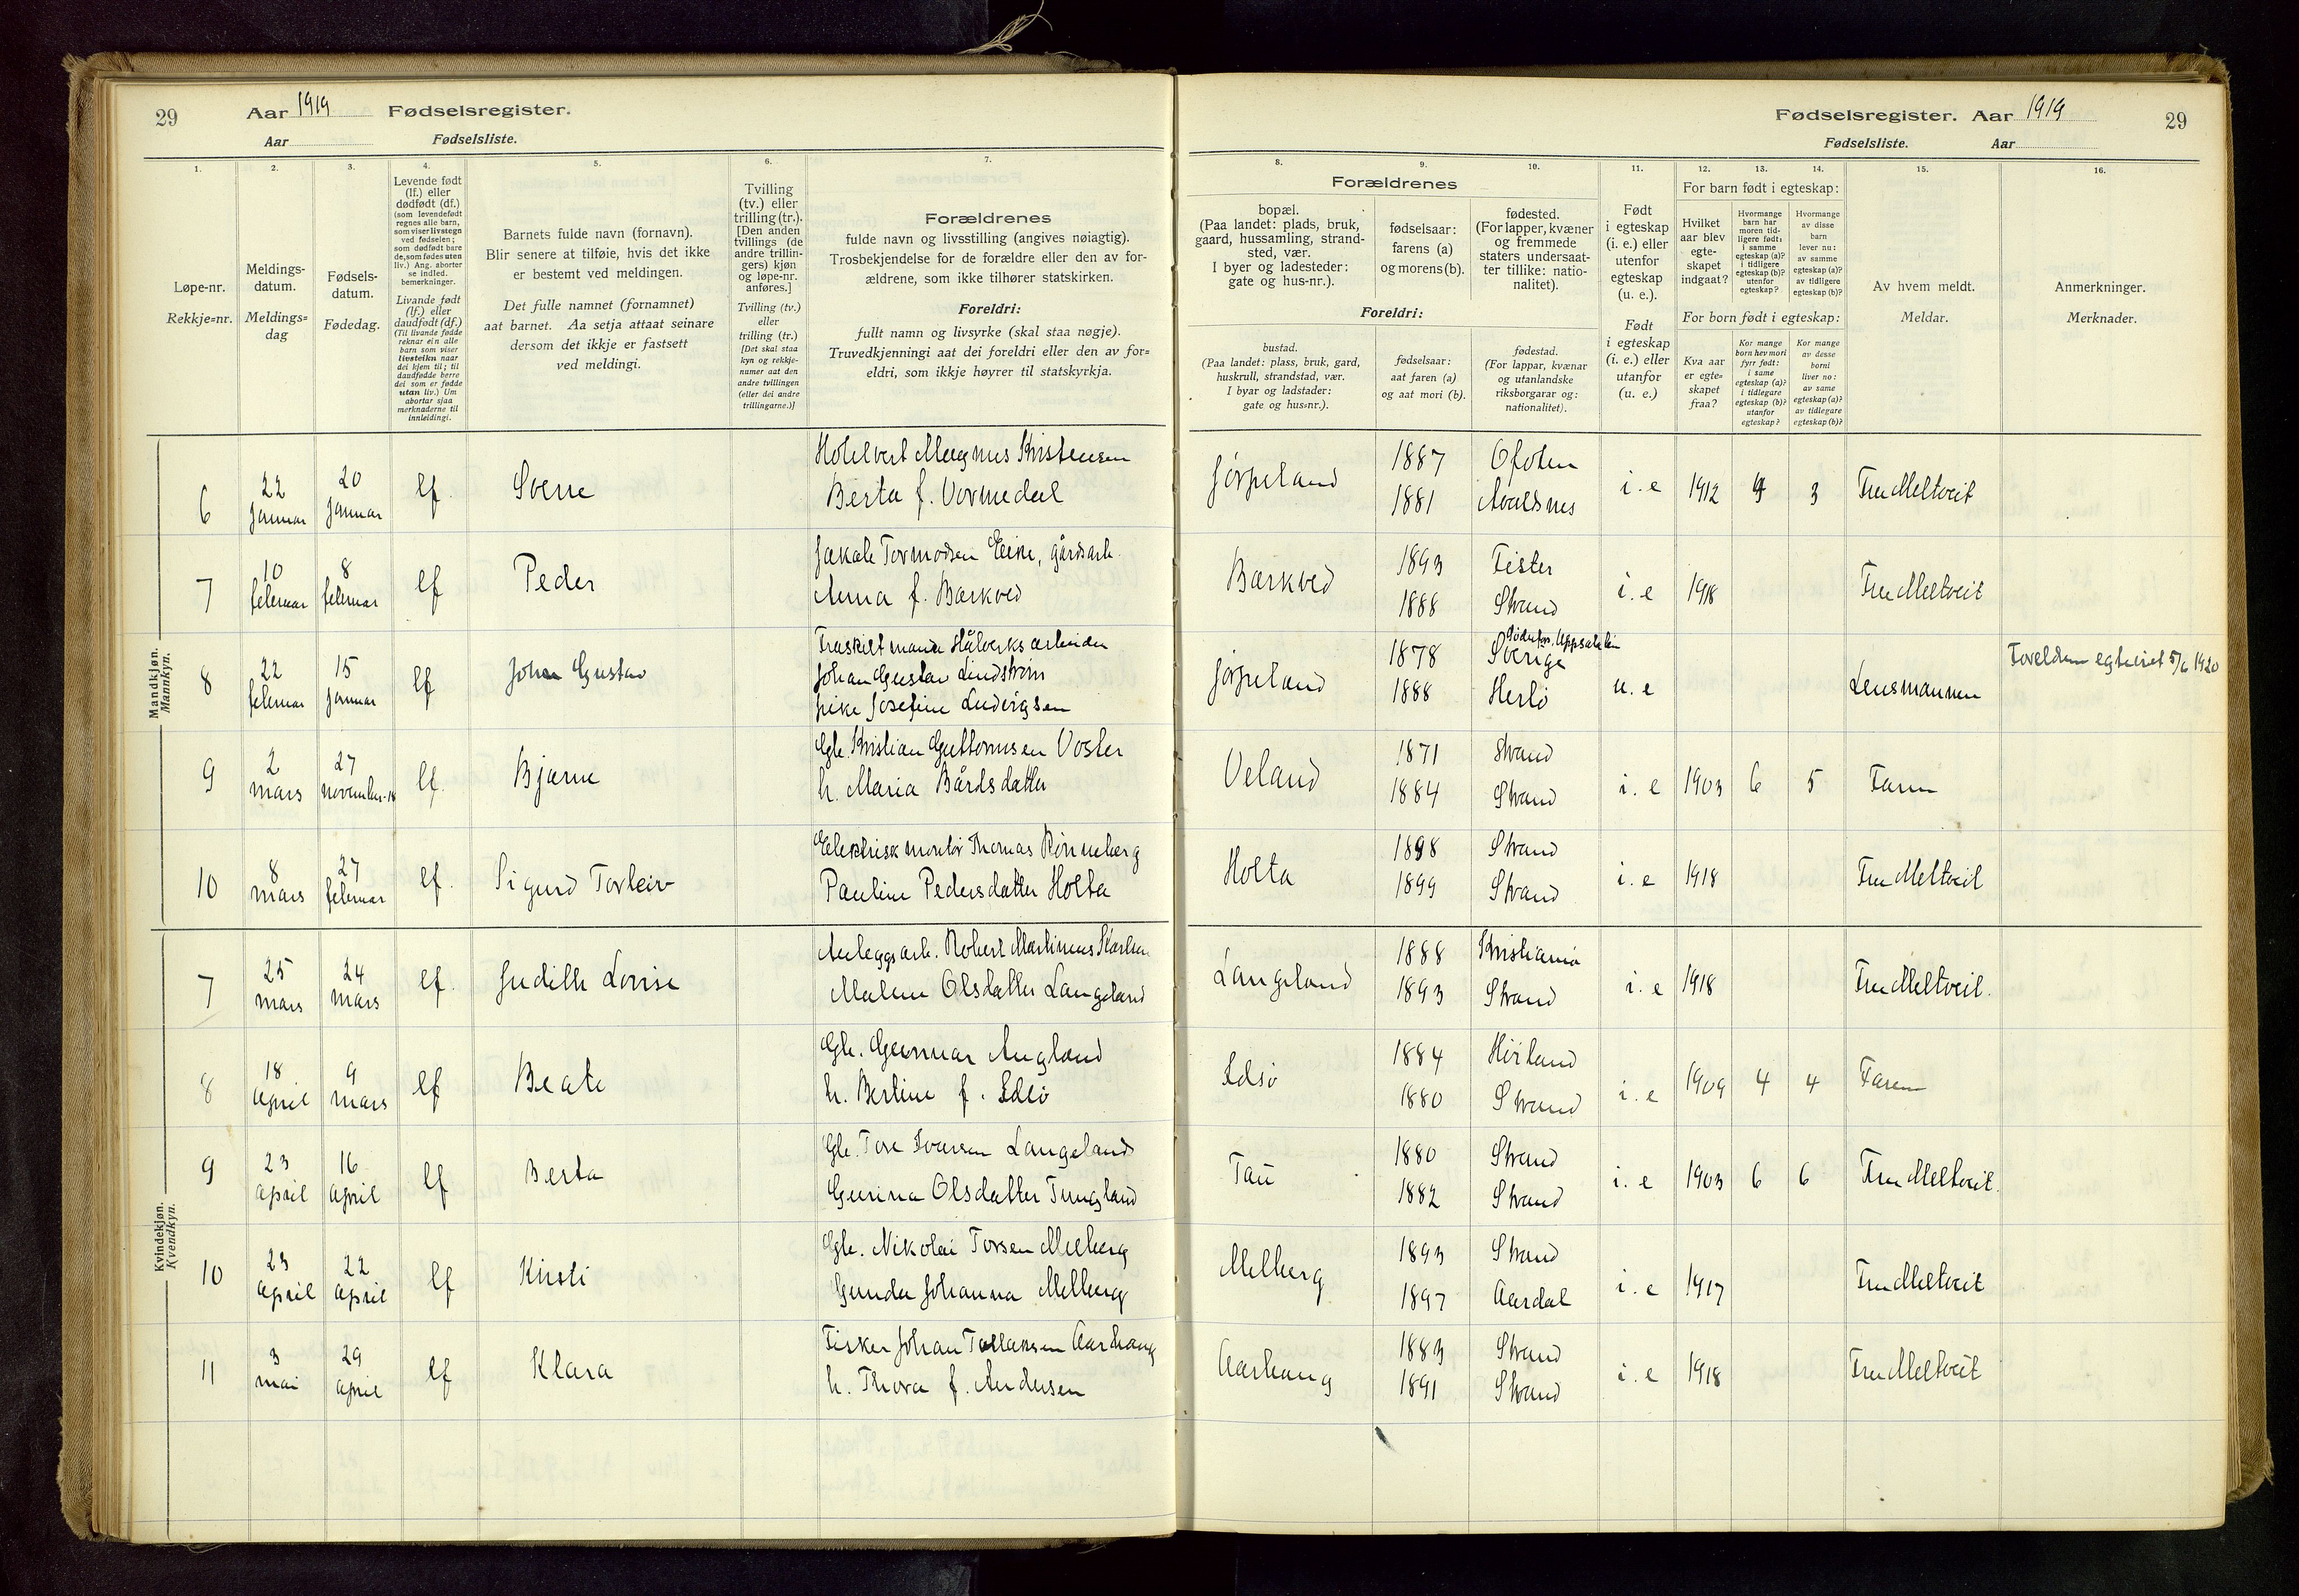 29 Aar 1919 Fødselsregister.
Aar Fødselsliste.
1. 2. 3. 4. 5. 6. 7.
Løpe-nr.
Rekkje=nr.
Meldings-
datum.
Meldings=
dag
Fødsels-
datum.
Fødedag.
Levende født
(lf.) eller
dødfødt (df.)
(som levendefødt
regnes alle barn,
som viser livstegn
ved fødselen;
som dødfødt bare
de, som fødes uten
liv.) Ang. aborter
se indled.
bemerkninger.
Livande født
(lf.) eller
daudfødt (df.)
(Til livande fødde
reknar ein alle
born som viser
livsteikn naar
dei kjem til; til
daudfødde berre
dei som er fødde
utan liv.) Um
abortar sjaa
merknaderne til
innleidingi.
Barnets fulde navn (fornavn).
Blir senere at tilføie, hvis det ikke
er bestemt ved meldingen.
Det fulle namnet (fornamnet)
aat barnet. Aa setja attaat seinare
dersom det ikkje er fastsett
ved meldingi.
Tvilling
(tv.) eller
trilling (tr.).
[Den anden
tvillings (de
andre trillin-
gers) kjøn
og løpe-nr.
anføres.]
Tvilling (tv.)
eller
trilling (tr.)
[Det skal staa
kyn og rekkje-
numer aat den
andre tvillingen
(eller dei andre
trillingarne.)]
Forældrenes
fulde navn og livsstilling (angives nøiagtig).
Trosbekjendelse for de forældre eller den av for-
ældrene, som ikke tilhører statskirken.
Foreldri:
fullt namn og livsyrke (skal staa nøgje).
Truvedkjenningi aat dei foreldri eller den av for=
eldri, som ikkje høyrer til statskyrkja.
Mandkjøn.
Mannkyn.
6 22 januar 20 januar lf. Sverre Hotelvert Magnus Kristensen
Berta f. Vormedal
7 10 februar 8 februar lf Peder Jakob Tormodsen Eike, gårdsarb.
Anna f. Barkved
8 22 februar 15 januar lf Johan Gustav Fraskilt mann Stålverksarbeider
Johan Gustav Lindstrøm
Josefine Ludvigsen
9 2 mars 27 november-18 lf. Bjarne Gb. Kristian Guttormsen Voster
h. Maria Bårdsdatter
10 8 mars 27 februar lf. Sigurd Torleiv Elektrisk montør Thomas Rønneberg
Pauline Pedersdatter Holta
Kvindekjøn.
Kvendkyn.
7 25 mars 24 mars lf. Judith Lovise Anleggsarb. Robert Martinius Karlsen
Malene Olsdatter Langeland
8 18 april 9 mars lf Beate Gb. Gunnar Augland
h. Bertine f. Idsø
9 23 april 16 april lf Berta Gb. Tore Ivarsen Langeland
Gurina Olsdatter Tungland
10 23 april 22 april lf Kirsti Gb. Nikolai Torsen Melberg
Gunda Johanna Melberg
11 3 mai 29 april lf Klara Fisker Johan Tollaksen Aarhaug
h. Thora f. Andersen
Fødselsregister. Aar 1919 29
Fødselsliste. Aar
8. 9. 10. 11. 12. 13. 14. 15. 16.
Forældrenes
bopæl.
(Paa landet: plads, bruk,
gaard, hussamling, strand-
sted, vær.
I byer og ladesteder:
gate og hus-nr.).
fødselsaar:
farens (a)
og morens (b).
fødested.
(For lapper, kvæner
og fremmede
staters undersaat-
ter tillike: natio-
nalitet).
Foreldri:
bustad.
(Paa landet: plass, bruk, gard,
huskrull, strandstad, vær.
I byar og ladstader:
gate og hus=nr.).
fødselsaar:
aat faren (a)
og aat mori (b).
fødestad.
(For lappar, kvænar
og utanlandske
riksborgarar og:
nationalitet).
Født
i egteskap
(i. e.) eller
utenfor
egteskap
(u. e.).
Født
i egteskap
(i. e.) eller
utanfor
(u. e.)
For barn født i egteskap:
Hvilket
aar blev
egte-
skapet
indgaat?
Hvormange
barn har
moren tid-
ligere født:
i samme
egteskap (a)?
i tidligere
egteskap (b)?
utenfor
egteskap?
Hvormange
av disse
barn
lever nu:
av samme
egteskap (a)?
av tidligere
egteskap (b)?
For born født i egteskap:
Kva aar
er egte-
skapet
fraa?
Kor mange
born hev mori
fyrr født:
i same
egteskap (a)?
i tidlegare
egteskap (b)?
utanfor
egteskap?
Kor mange
av desse
borni
liver no:
av same
egteskap (a)?
av tidlegare
egteskap (b)?
Av hvem meldt.
Meldar.
Anmerkninger.
Merknader.
Jørpeland 1887 Ofoten
1881 Avaldsnes i.e 1912 4 3 Fru Meltveit
Barkved 1893 Fister
1888 Strand i.e 1918 Fru Meltveit
Jørpeland 1878 Sverige
1888 Herlø u.e Lensmannen Foreldrene egteviet 5/6 1920
Veland 1871 Strand
1884 Strand i.e 1903 6 5 Faren
Holta 1898 Strand
1899 Strand i.e 1918 Fru Meltveit
Langeland 1888 Kristiania
1893 Strand i.e 1918 Fru Meltveit.
Idsø 1884 Høiland
1880 Strand i.e 1909 4 4 Faren
Tau 1880 Strand
1882 Strand i.e 1903 6 6 Fru Meltveit.
Melberg 1893 Strand
1897 Aardal i.e 1917 Fru Meltveit
Aarhaug 1883 Strand
1891 Strand i.e 1918 Fru Meltveit